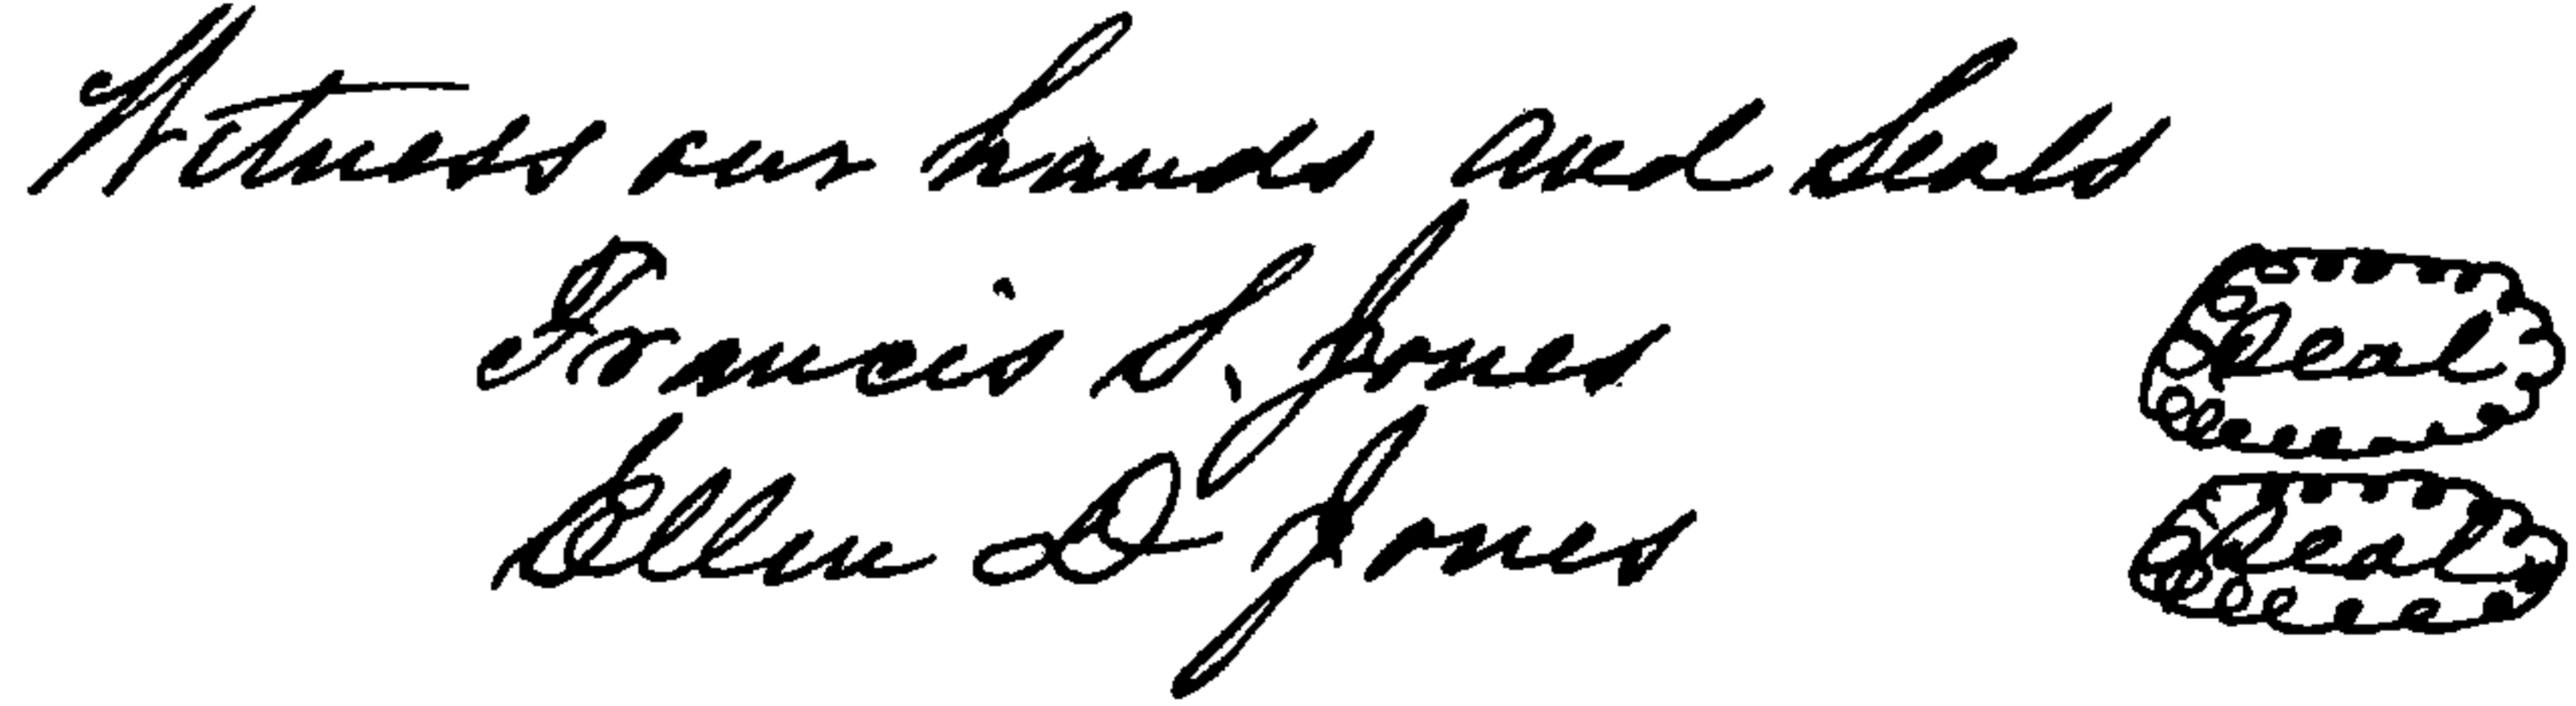 Witness our hands and seals
Francis S. Jones Seal
Ellen D Jones Seal